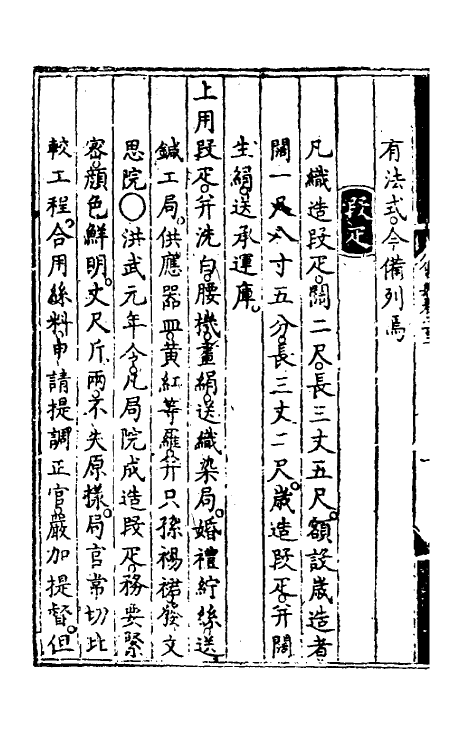 有法式。今備列焉
段疋
凡織造段疋。闊二尺。長三丈五尺。額設歲造者
闊一尺八寸五分。長三丈二尺。歲造段疋。并闊
生絹。送承運庫。
上用段疋。并洗白腰機。畫絹。送織染局。婚禮紵絲。送
鍼工局。供應器皿。黃紅等羅。并只孫裼裙。發文
思院○洪武元年令。凡局院成造段疋。務要緊
密。顏色鮮明。丈尺斤兩。不失原樣。局官常切比
較工程。合用絲料。申請提調正官。嚴加提督。但